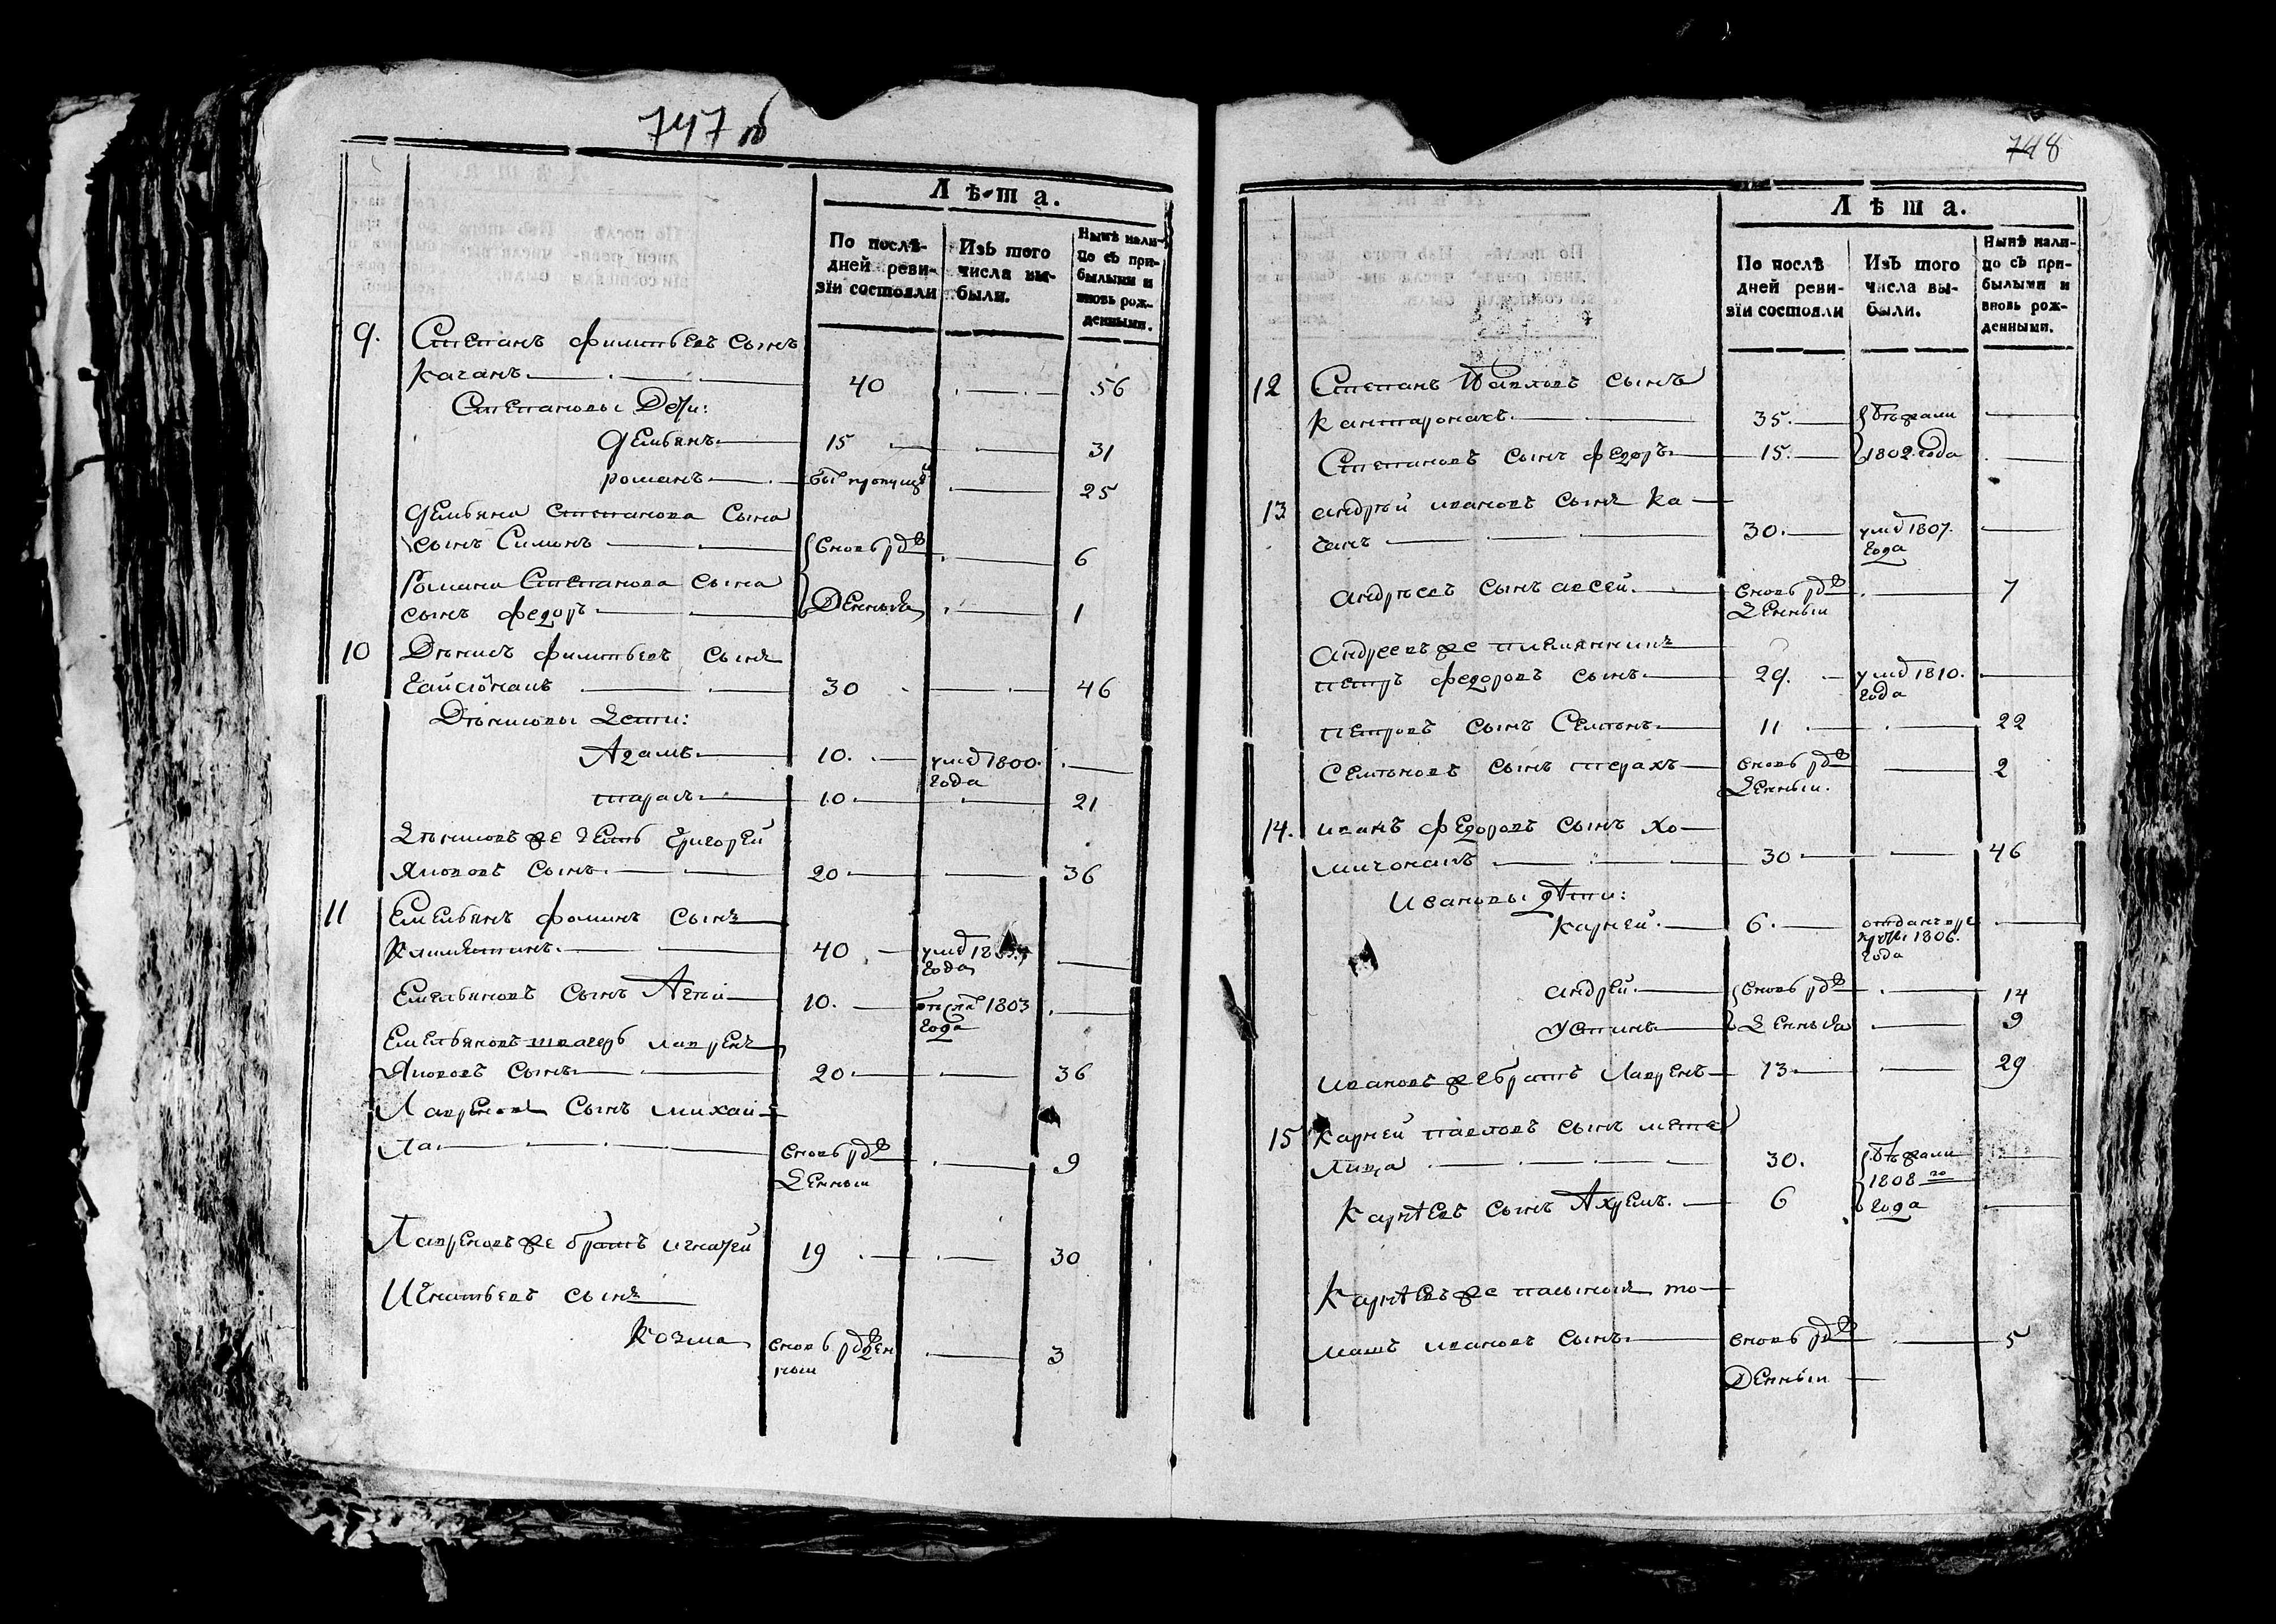 747 об
Лѣта.
По послѣ-
дней реви-
зїи состояли
Изъ того
числа вы-
были.
Нынѣ нали-
цо съ при-
былыми и
вновь рож-
денными.
9. Степанъ филипьевъ сынъ
Качанъ 40 56
Степановы Дети:
Демьянъ 15 31
романъ 25
Демьяна Степанова Сына
сынъ Симонъ вновь рож 6
Романа Степанова сына
сынъ федоръ Денныя 1
10 Дѣнисъ филипьевъ сынъ
30 46
Дѣнисовы дети:
Адамъ 10. умеръ 1800.
года
тарасъ 10 21
Дѣнисовъ же зеть Григорей
Якововъ сынъ 20 36
11 Емельянъ фоминъ сынъ
40 умеръ
года
Емельяновъ сынъ 10. 1803
года
Емельяновъ швагеръ лавренъ
Якововъ сынъ 20 36
Лавреновъ Сынъ михаи-
ла вновь рож 9
денныи
Лавреновъ же братъ игнатей 19 30
Игнатьевъ сынъ
Козма вновь рожден 3
ныи
748
Лѣта.
По послѣ
дней реви-
зїи состояли
Изъ того
числа вы-
были.
Нынѣ нали-
цо съ при-
былыми и
вновь рож-
денными.
12 Степанъ Павловъ сынъ
35. бѣжали
Степановъ сынъ федоръ 15. 1802 года
13 андрѣй ивановъ сынъ Ка-
чанъ 30. умеръ 1807.
года
андрѣевъ сынъ авсей вновь рож 7
денныи
андреевъ же племянникъ
петръ федоровъ сынъ 29. умеръ 1810.
года
петровъ сынъ Семіонъ 11 22
Семіоновъ сынъ тарахъ вновь рож 2
денныи.
14. иванъ федоровъ сынъ Хо-
мичонакъ 30 46
Ивановы дѣти:
Карней 6. отданъ в ре
круты 1806.
года
андрей вновь рож 14
устинъ денныя 9
ивановъ же братъ лавренъ 13 29
15 Карней павловъ сынъ мете
лица 30. бѣжали
1808 го
Карнѣевъ сынъ Ахремъ. 6 года
Карнѣевъ же пасынокъ то-
машъ ивановъ сынъ вновь рож 5
Денныи